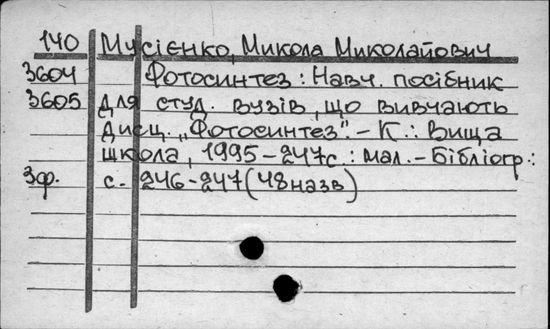 140 Мусієнко, Микола Миколайович
3604 Фотосинтез: Навч. посібник
3605 для студ. вузів, що вивчають
дисц. „Фотосинтез". – К.: Вища
школа, 1995 – 247с.: мал. – Бібліогр.:
3ф. с. 246-247 (48назв)